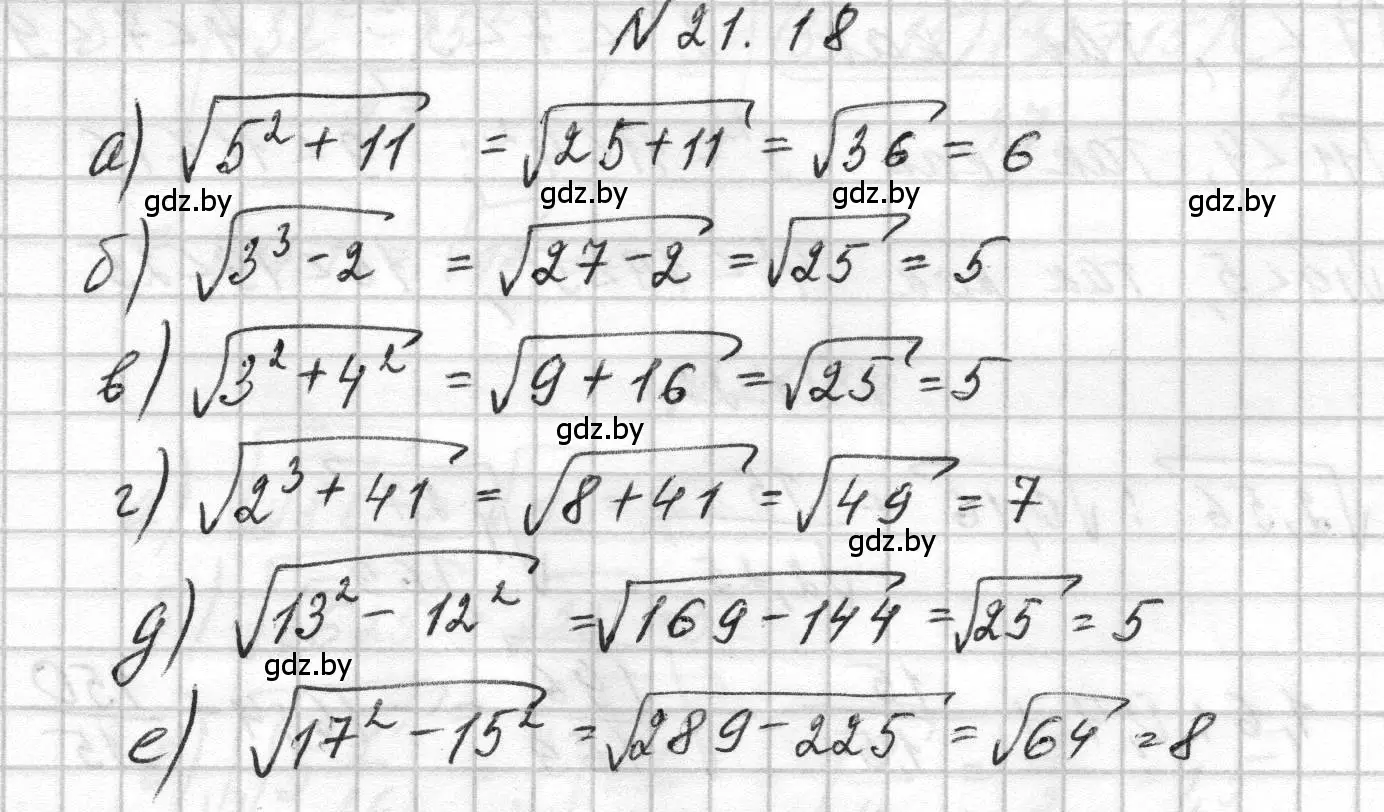 N 21. 18
а) √(5² + 11) = √(25+11) = √36 = 6
gdz.by gdz.by gdz.by gdz.by
б) √(3³ - 2) = √(27 - 2) = √25 = 5
в) √(3² + 4²) = √(9 + 16) = √25 = 5
gdz.by
г) √(2³ + 41) = √(8 + 41) = √49 = 7
gdz.by
д) √(13² - 12²) = √(169 - 144) = √25 = 5
gdz.by
е) √(17² - 15²) = √(289 - 225) = √64 = 8